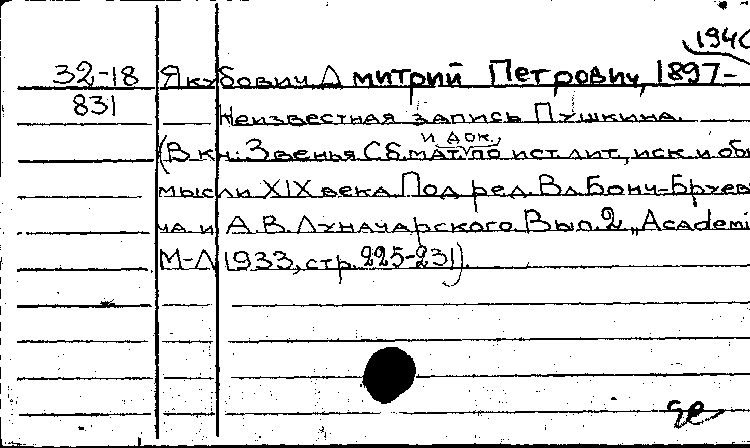 1940
32-18 Якубович Дмитрий Петрович, 1897-
831 Неизвестная запись Пушкина.
и док.,
(В кн: Звенья Сб. мат. по ист. лит., иск. и общ
мысли XIX века. Под ред. Вл. Бонч-Бруев
ча и А. В. Луначарского. Вып. 2 „Academi
М-Л 1933, стр. 225-231).